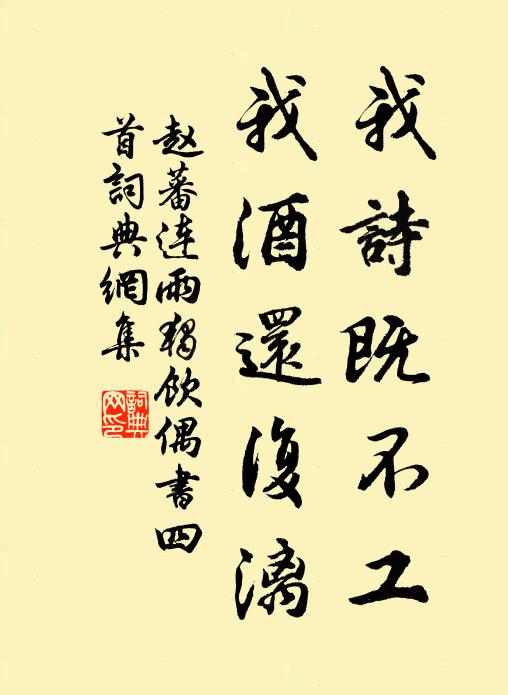 我詩既不工
我酒還復漓
赵蕃连雨独飲偶書四
首詞典網集
詞典
网印